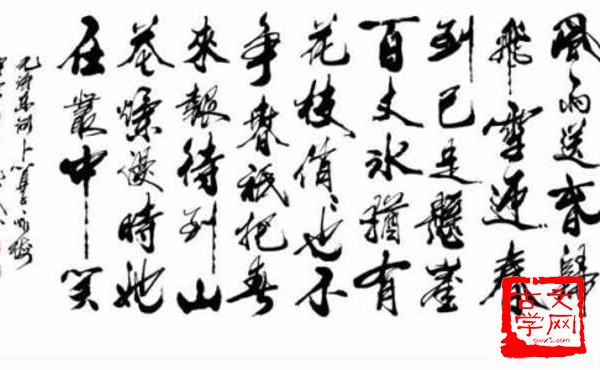 風雨送春歸
飛雪迎春
到已是懸崖
百丈冰猶有
花枝俏、也不
争春祇把春
來報待到山
花爛漫時她
在叢中笑
毛澤東詞卜算子詠梅
古文
学网